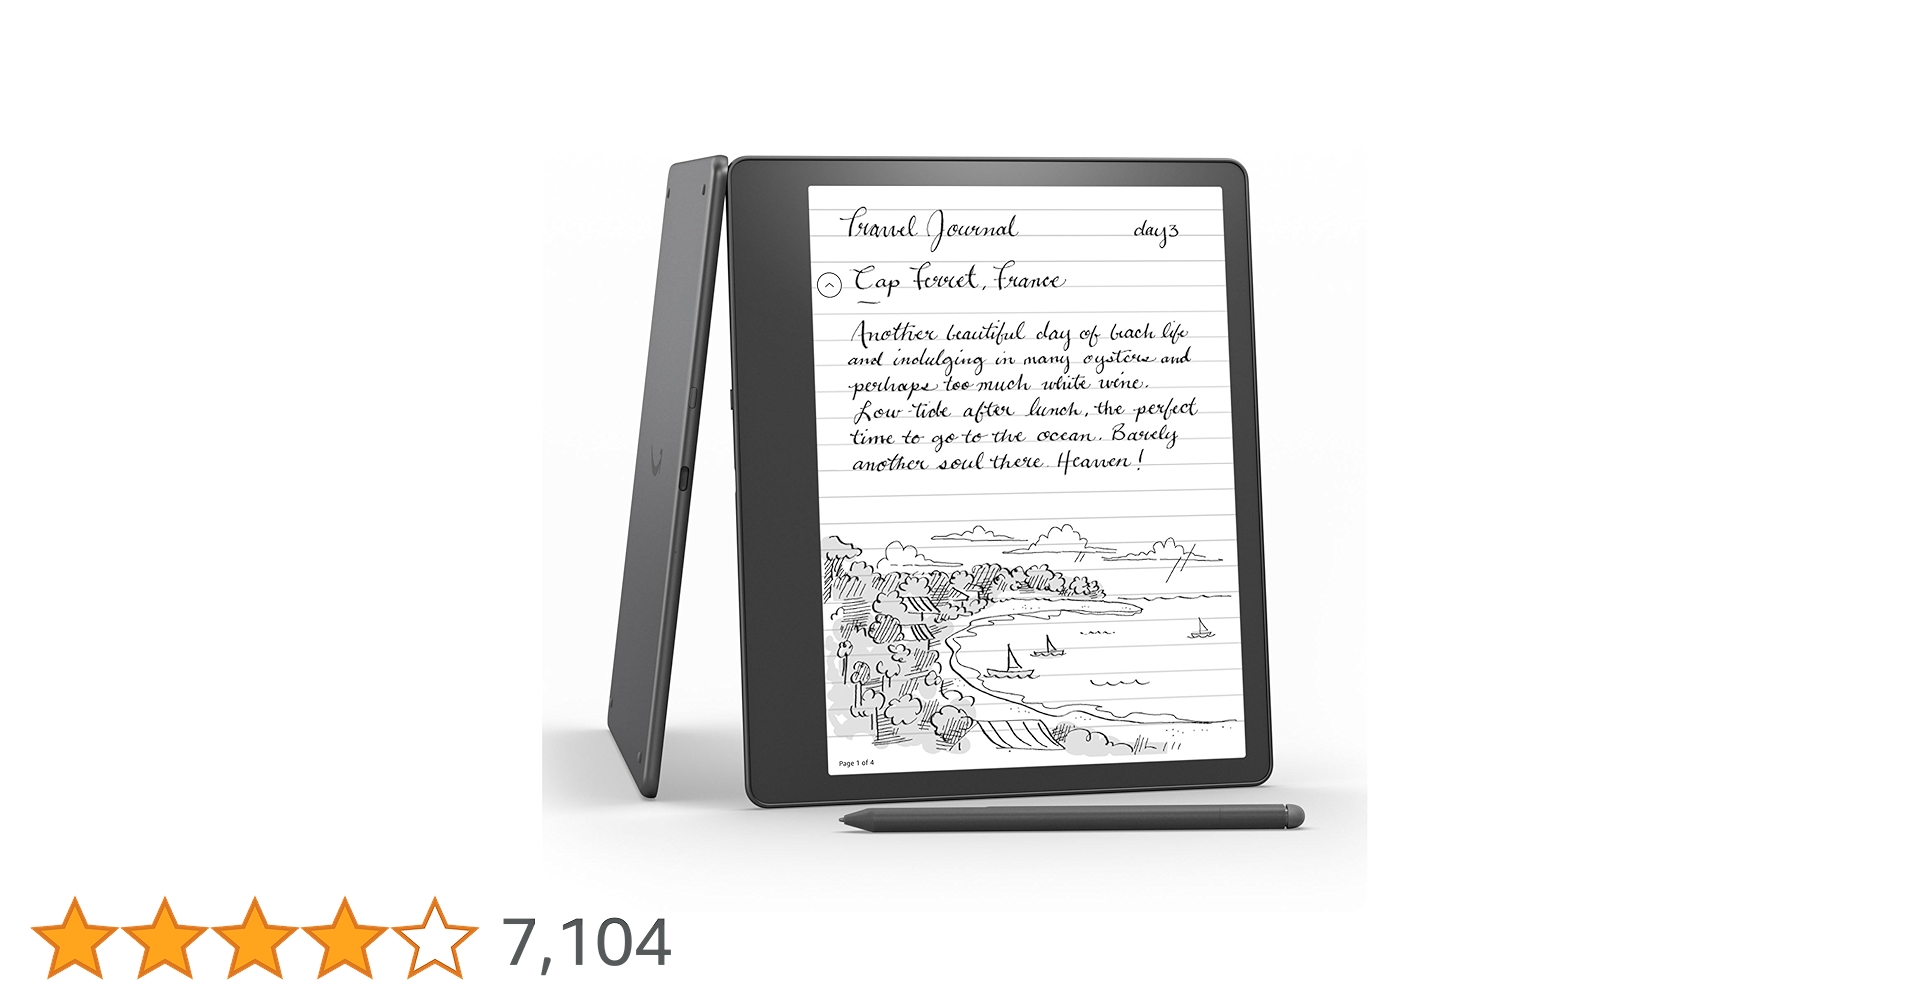 Travel Journal day 3
Cap Ferret, France
Another beautiful day of beach life
and indulging in many oysters and
perhaps too much white wine.
Low-tide after lunch, the perfect
time to go to the ocean. Barely
another soul there. Heaven!
Page 1 of 4
7,104